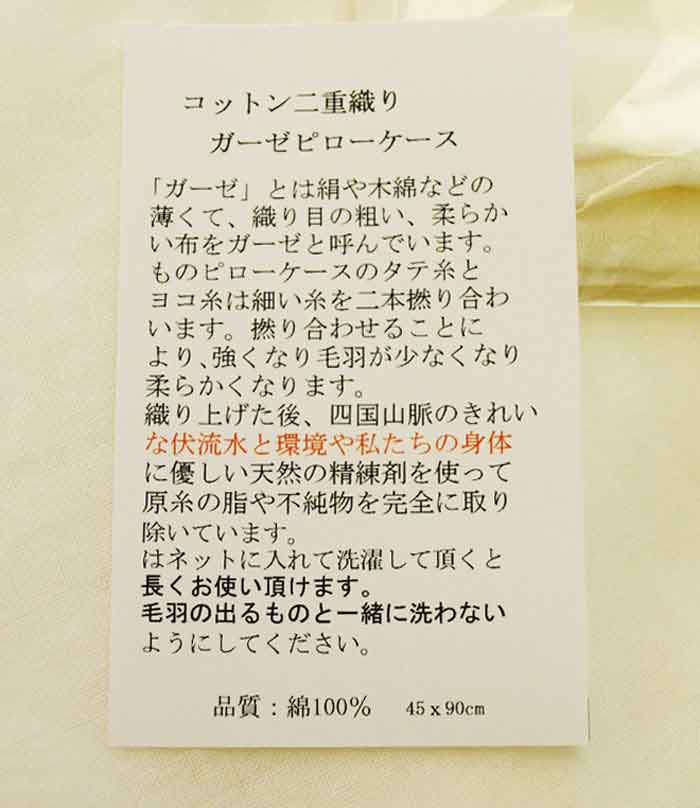 コットン二重織り
ガーゼピローケース
「ガーゼ」とは絹や木綿などの
薄くて、織り目の粗い、柔らか
い布をガーゼと呼んでいます。
ものピローケースのタテ糸と
ヨコ糸は細い糸を二本撚り合わ
います。撚り合わせることに
より、強くなり毛羽が少なくなり
柔らかくなります。
織り上げた後、四国山脈のきれい
な伏流水と環境や私たちの身体
に優しい天然の精練剤を使って
原糸の脂や不純物を完全に取り
除いています。
はネットに入れて洗濯して頂くと
長くお使い頂けます。
毛羽の出るものと一緒に洗わない
ようにしてください。
品質：綿100％ 45ｘ90cm